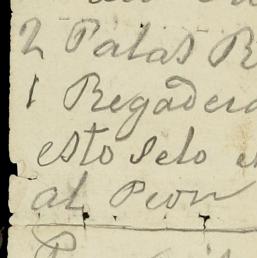 2 Palas R
1 Regadera
esto selo e
al Peon